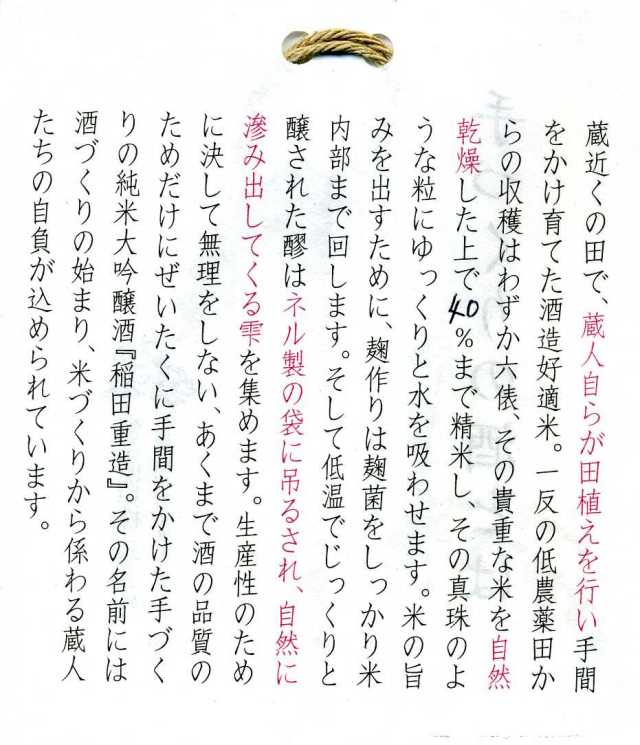 蔵近くの田で、蔵人自らが田植えを行い手間
をかけ育てた酒造好適米。一反の低農薬田か
らの収穫はわずか六俵、その貴重な米を自然
乾燥した上で40％まで精米し、その真珠のよ
うな粒にゆっくりと水を吸わせます。米の旨
みを出すために、麹作りは麹菌をしっかり米
内部まで回します。そして低温でじっくりと
醸された醪はネル製の袋に吊るされ、自然に
滲み出してくる雫を集めます。生産性のため
に決して無理をしない、あくまで酒の品質の
ためだけにぜいたくに手間をかけた手づく
りの純米大吟醸酒『稲田重造』。その名前には
酒づくりの始まり、米づくりから係わる蔵人
たちの自負が込められています。